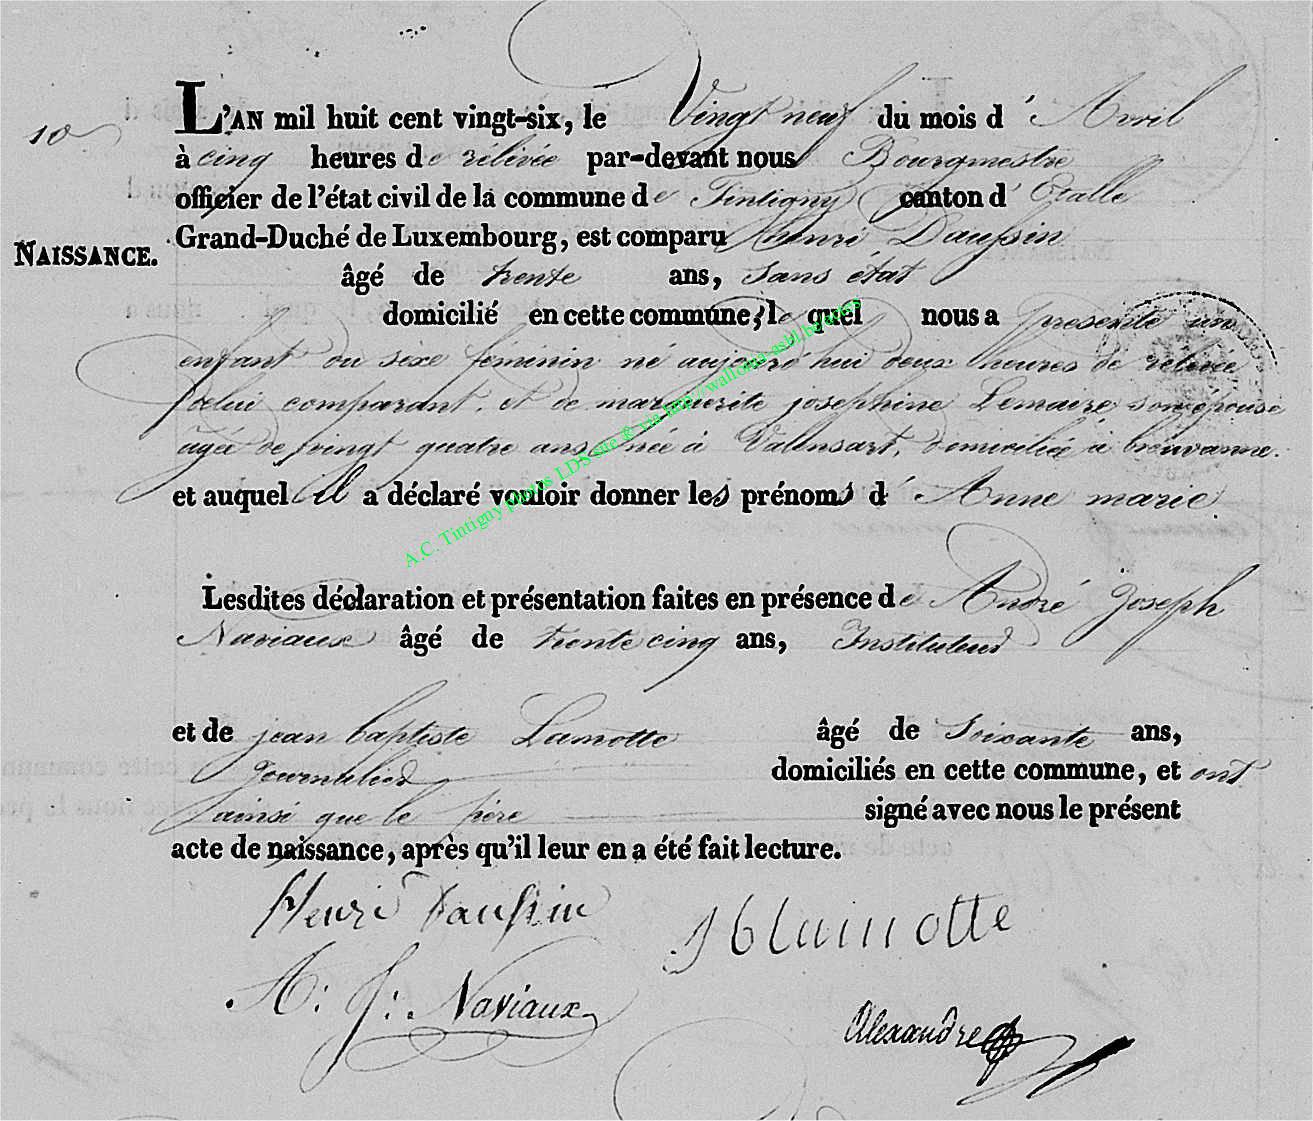 10
L'AN mil huit cent vingt-six, le Vingt neuf du mois d'Avril
à cinq heures de rélévée par-devant nous Bourgmestre
officier de l'état civil de la commune de Tintigny canton d'Etalle
NAISSANCE.
Grand-Duché de Luxembourg, est comparu henri Daussin
âgé de trente ans, Sans état
domicilié en cette commune, le quel nous a presenté un
enfant du sexe feminin né aujourd'hui deux heures de rélévée
delui comparant, et de marguerite josephine Lemaire son epouse
agée de vingt quatre ans née à Valensart, domiciliée a breuvanne.
et auquel il a déclaré vouloir donner les prénoms d'Anne marie.
Lesdites déclaration et présentation faites en présence de André Joseph
Naviaux âgé de trente cinq ans, Instituteur
et de jean baptiste Lamotte âgé de Soixante ans,
journalier domiciliés en cette commune, et ont
ainsi que le père signé avec nous le présent
acte de naissance, après qu'il leur en a été fait lecture.
Henri Daussin
J b lamotte
A: J: Naviaux
Alexandre
A.C. Tintigny photos LDS site & via http://wallonia-asbl.be/